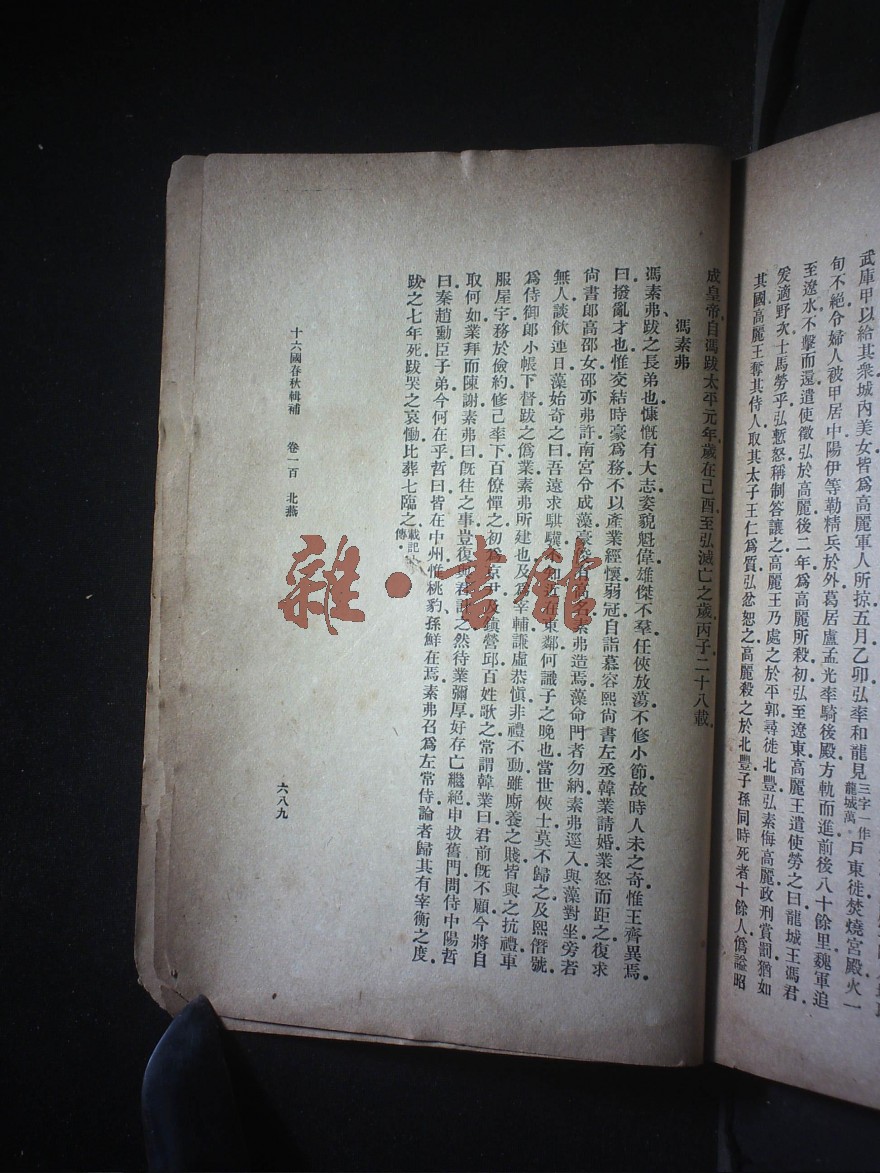 武庫甲以給其衆城內美女皆爲高麗軍人所掠五月乙卯弘率和龍見三字一作龍城萬戶東徙焚燒宮殿火一
旬不絕令婦人被甲居中陽伊等勒精兵於外葛居盧孟光率騎後殿方軌而進前後八十餘里魏軍追
至遼水不擊而還遣使徵弘於高麗後二年爲高麗所殺初弘至遼東高麗王遣使勞之曰龍城王馮君
爰適野次士馬勞乎弘慙怒稱制答讓之高麗王乃處之於平郭尋徙北豐弘素侮高麗政刑賞罰猶如
其國高麗王奪其侍人取其太子王仁爲質弘忿恕之高麗殺之於北豐子孫同時死者十餘人僞謚昭
成皇帝自馮跋太平元年歲在己酉至弘滅亡之歲丙子二十八載
馮素弗
馮素弗跋之長弟也慷慨有大志姿貌魁偉雄傑不羣任俠放蕩不修小節故時人未之奇惟王齊異焉
曰撥亂才也惟交結時豪爲務不以產業經懷弱冠自詣慕容熙尙書左丞韓業請婚業怒而距之復求
尙書郎高邵女邵亦弗許南宮令成藻豪俊有高名素弗造焉藻命門者勿納素弗逕入與藻對坐旁若
無人談飮連日藻始奇之曰吾遠求騏驥不知近在東鄰何識子之晚也當世俠士莫不歸之及熙僭號
爲侍御郎小帳下督跋之僞業素弗所建也及爲宰輔謙虛恭愼非禮不動雖廝養之賤皆與之抗禮車
服屋宇務於儉約修己率下百僚憚之初爲京尹及鎭營邱百姓歌之常謂韓業曰君前旣不顧今將自
取何如業拜而陳謝素弗曰旣往之事豈復與君計之然待業彌厚好存亡繼絕申拔舊門問侍中陽哲
曰秦趙勳臣子弟今何在乎哲曰皆在中州惟桃豹孫鮮在焉素弗召爲左常侍論者歸其有宰衡之度
跋之七年死跋哭之哀慟比葬七臨之載記傳
十六國春秋輯補 卷一百 北燕
六八九
雜·書館